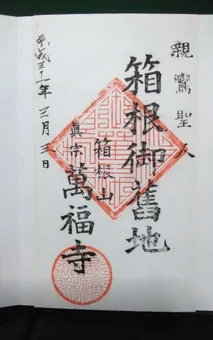 親鸞聖人
箱根御舊地
箱根山
真宗
萬福寺
平成三十一年三月三日